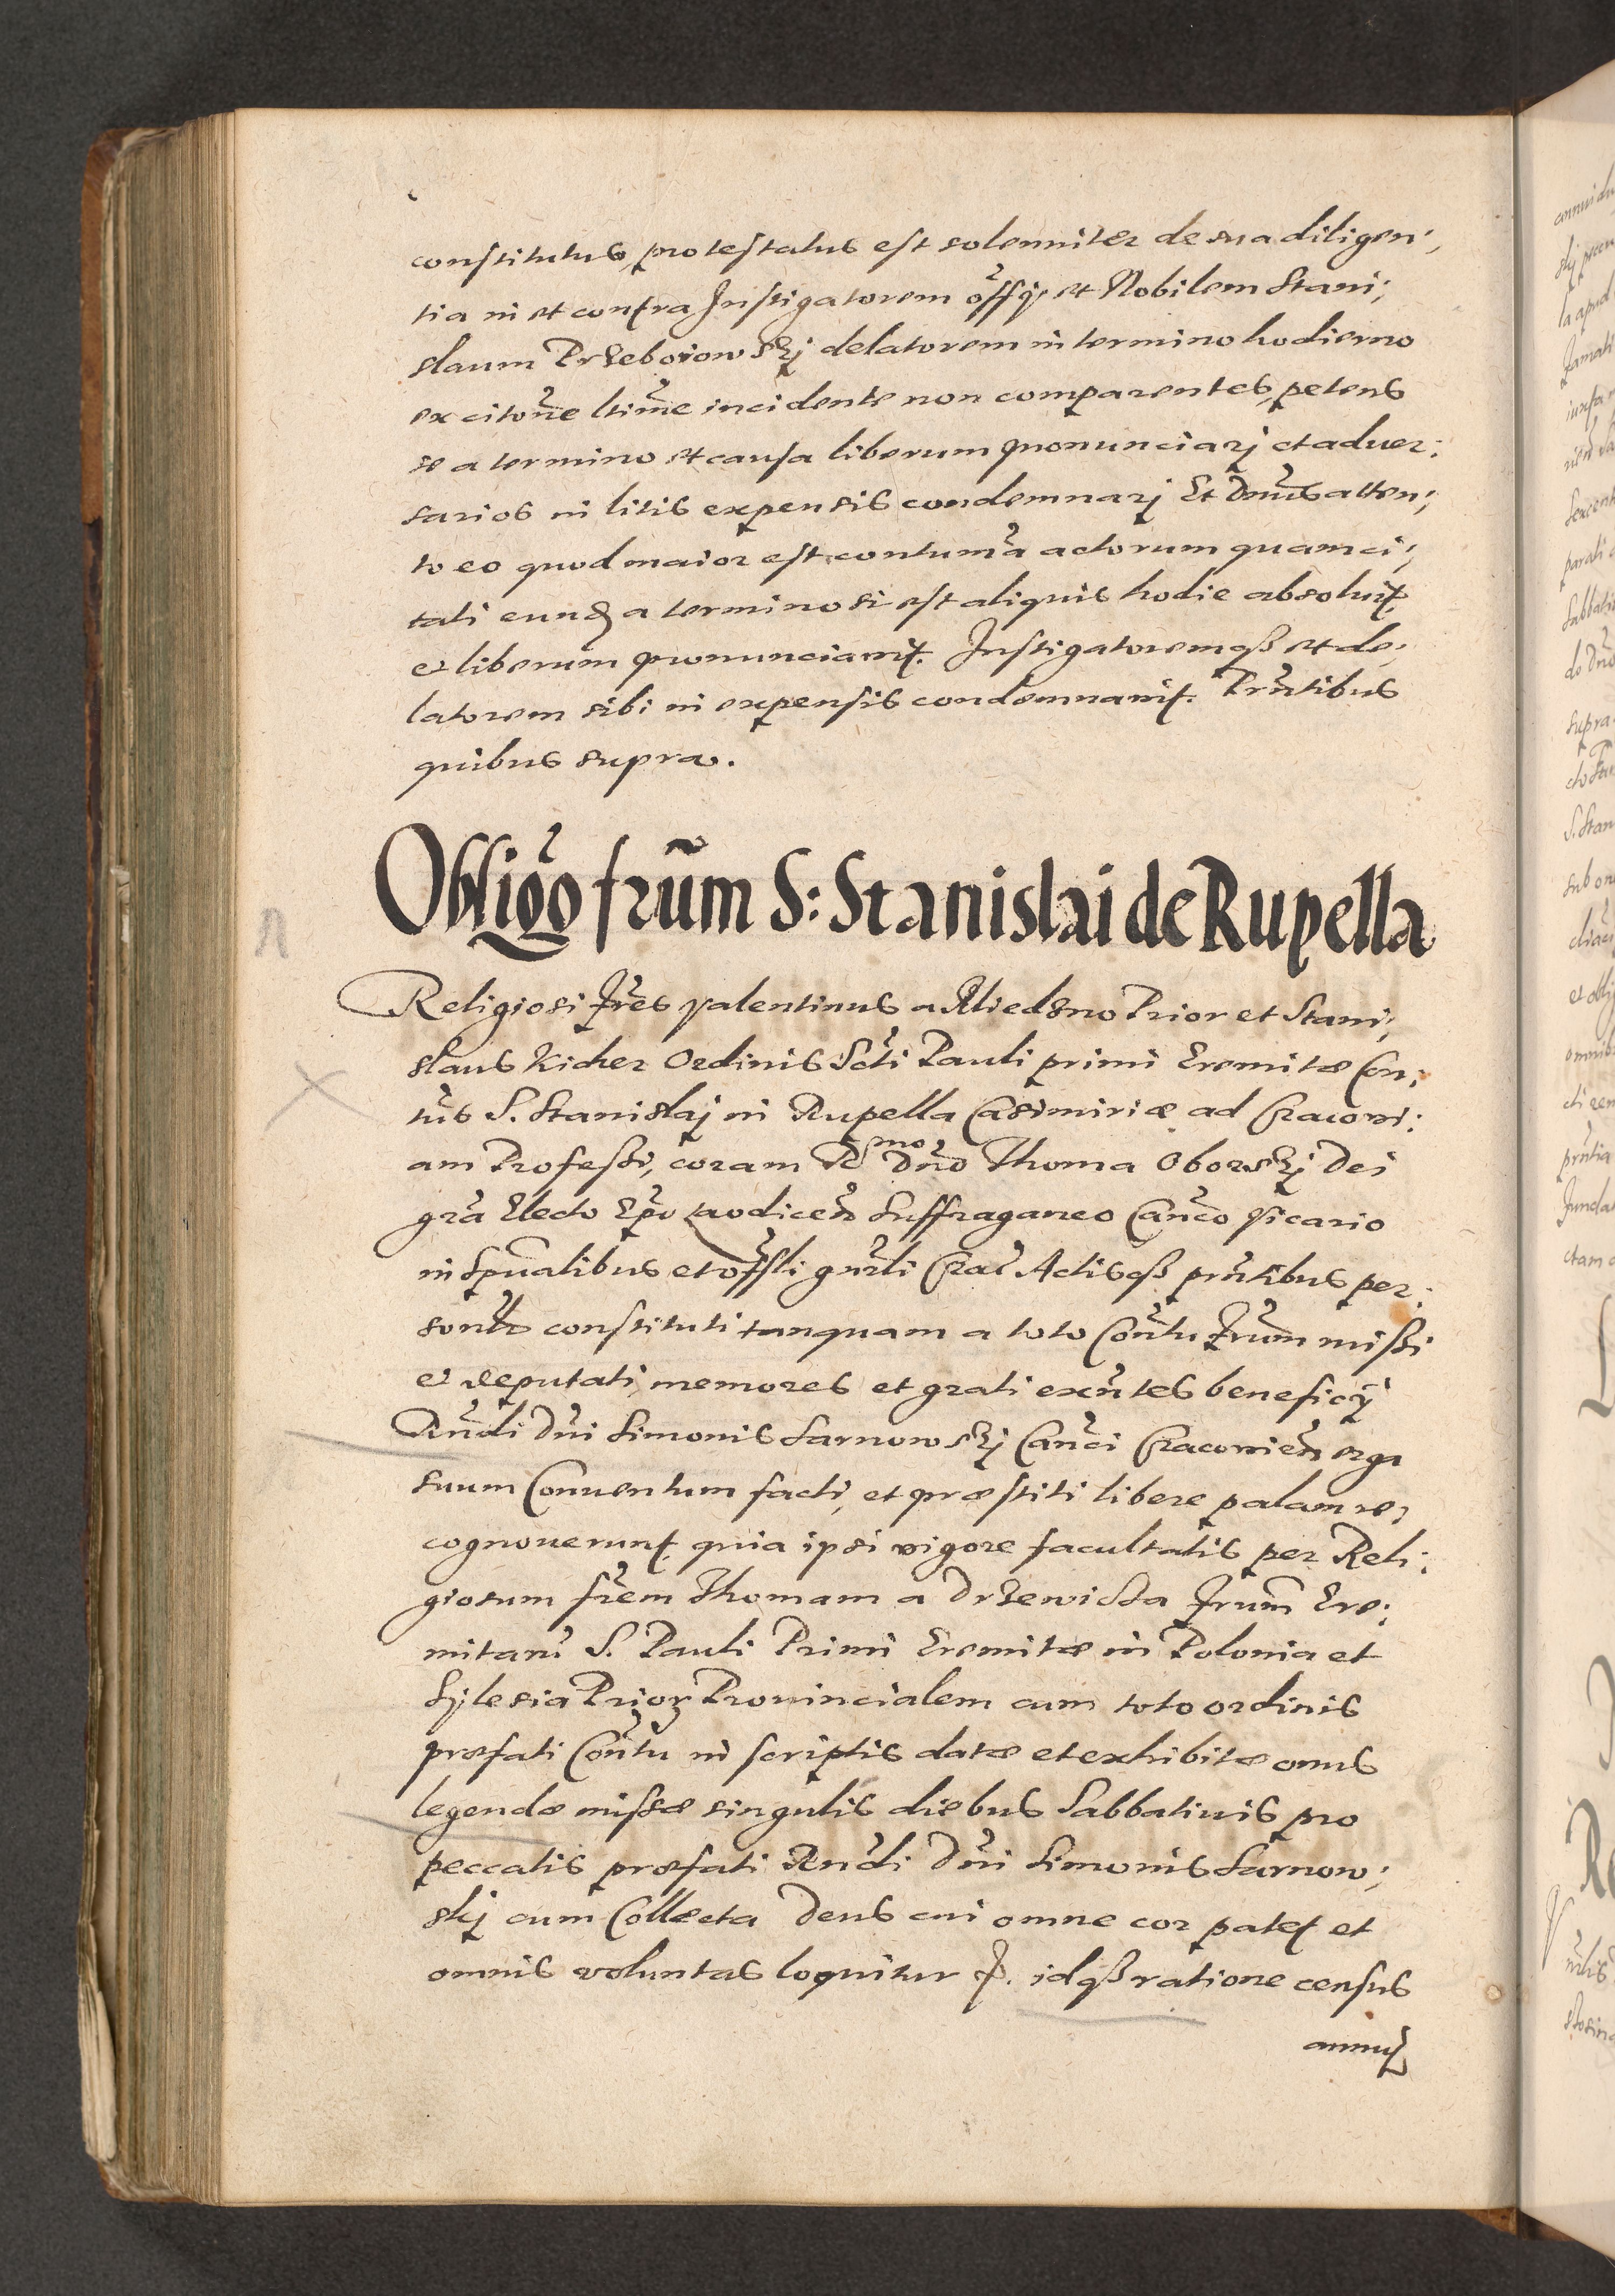 constitutus, protestatus est solenniter de sua diligen;
tia in et contra Instigatorem offȳ et Nobilem Stani;
slaum Przeborowskj delatorem in termino hodierno
ex citoñe ltime incidente non comparentes, petens
se a termino et causa liberum pronunciarj et aduer:
sarios in litis expensis condemnarj Et Dnus atten;
to eo quod maior est contuma actorum quam ci;
tati eund a termino si est aliquis hodie absoluit,
et liberum pronunciauit. Instigatoremqß et de;
latorem sibi in expensis condemnauit. Prntibus
quibus supra.
Obligo frum S: Stanislai de Rupella
Religiosi Fres Valentinus a Kliedzno Prior et Stani;
slaus Kicher Ordinis Scti Pauli primi Eremitæ Con;
tus S. Stanislaj in Rupella Casimiriæ ad Cracoui:
am Professi, coram R smo Dno Thoma Oborskj Dei
gra Electo Epo Laodicen Suffraganeo Canco Vicario
in Spualibus et offli gnrli Crac Actisqß prntibus per:
sonlr constituti tanquam a toto Contu Frum missi
et deputati, memores et grati exntes beneficÿ
Rndi Dni Simonis Sarnowskj Canci Cracouien erga
suum Conuentum facti, et præstiti libere palam re;
cognouerunt, quia ipsi vigore facultatis per Reli:
giosum frem Thomam a Drzewicza Frum Ere:
mitaru S. Pauli Primi Eremitæ in Polonia et
Sylesia Prior Prouincialem cum toto ordinis
præfati Contu in scriptis datæ et exhibitæ onus
legendæ missæ singulis diebus Sabbatiuis pro
peccatis præfati Rndi Dni Simonis Sarnow;
skj cum Collecta Deus cui omne cor patet et
omnis voluntas loquitur idqß ratione census
annuj